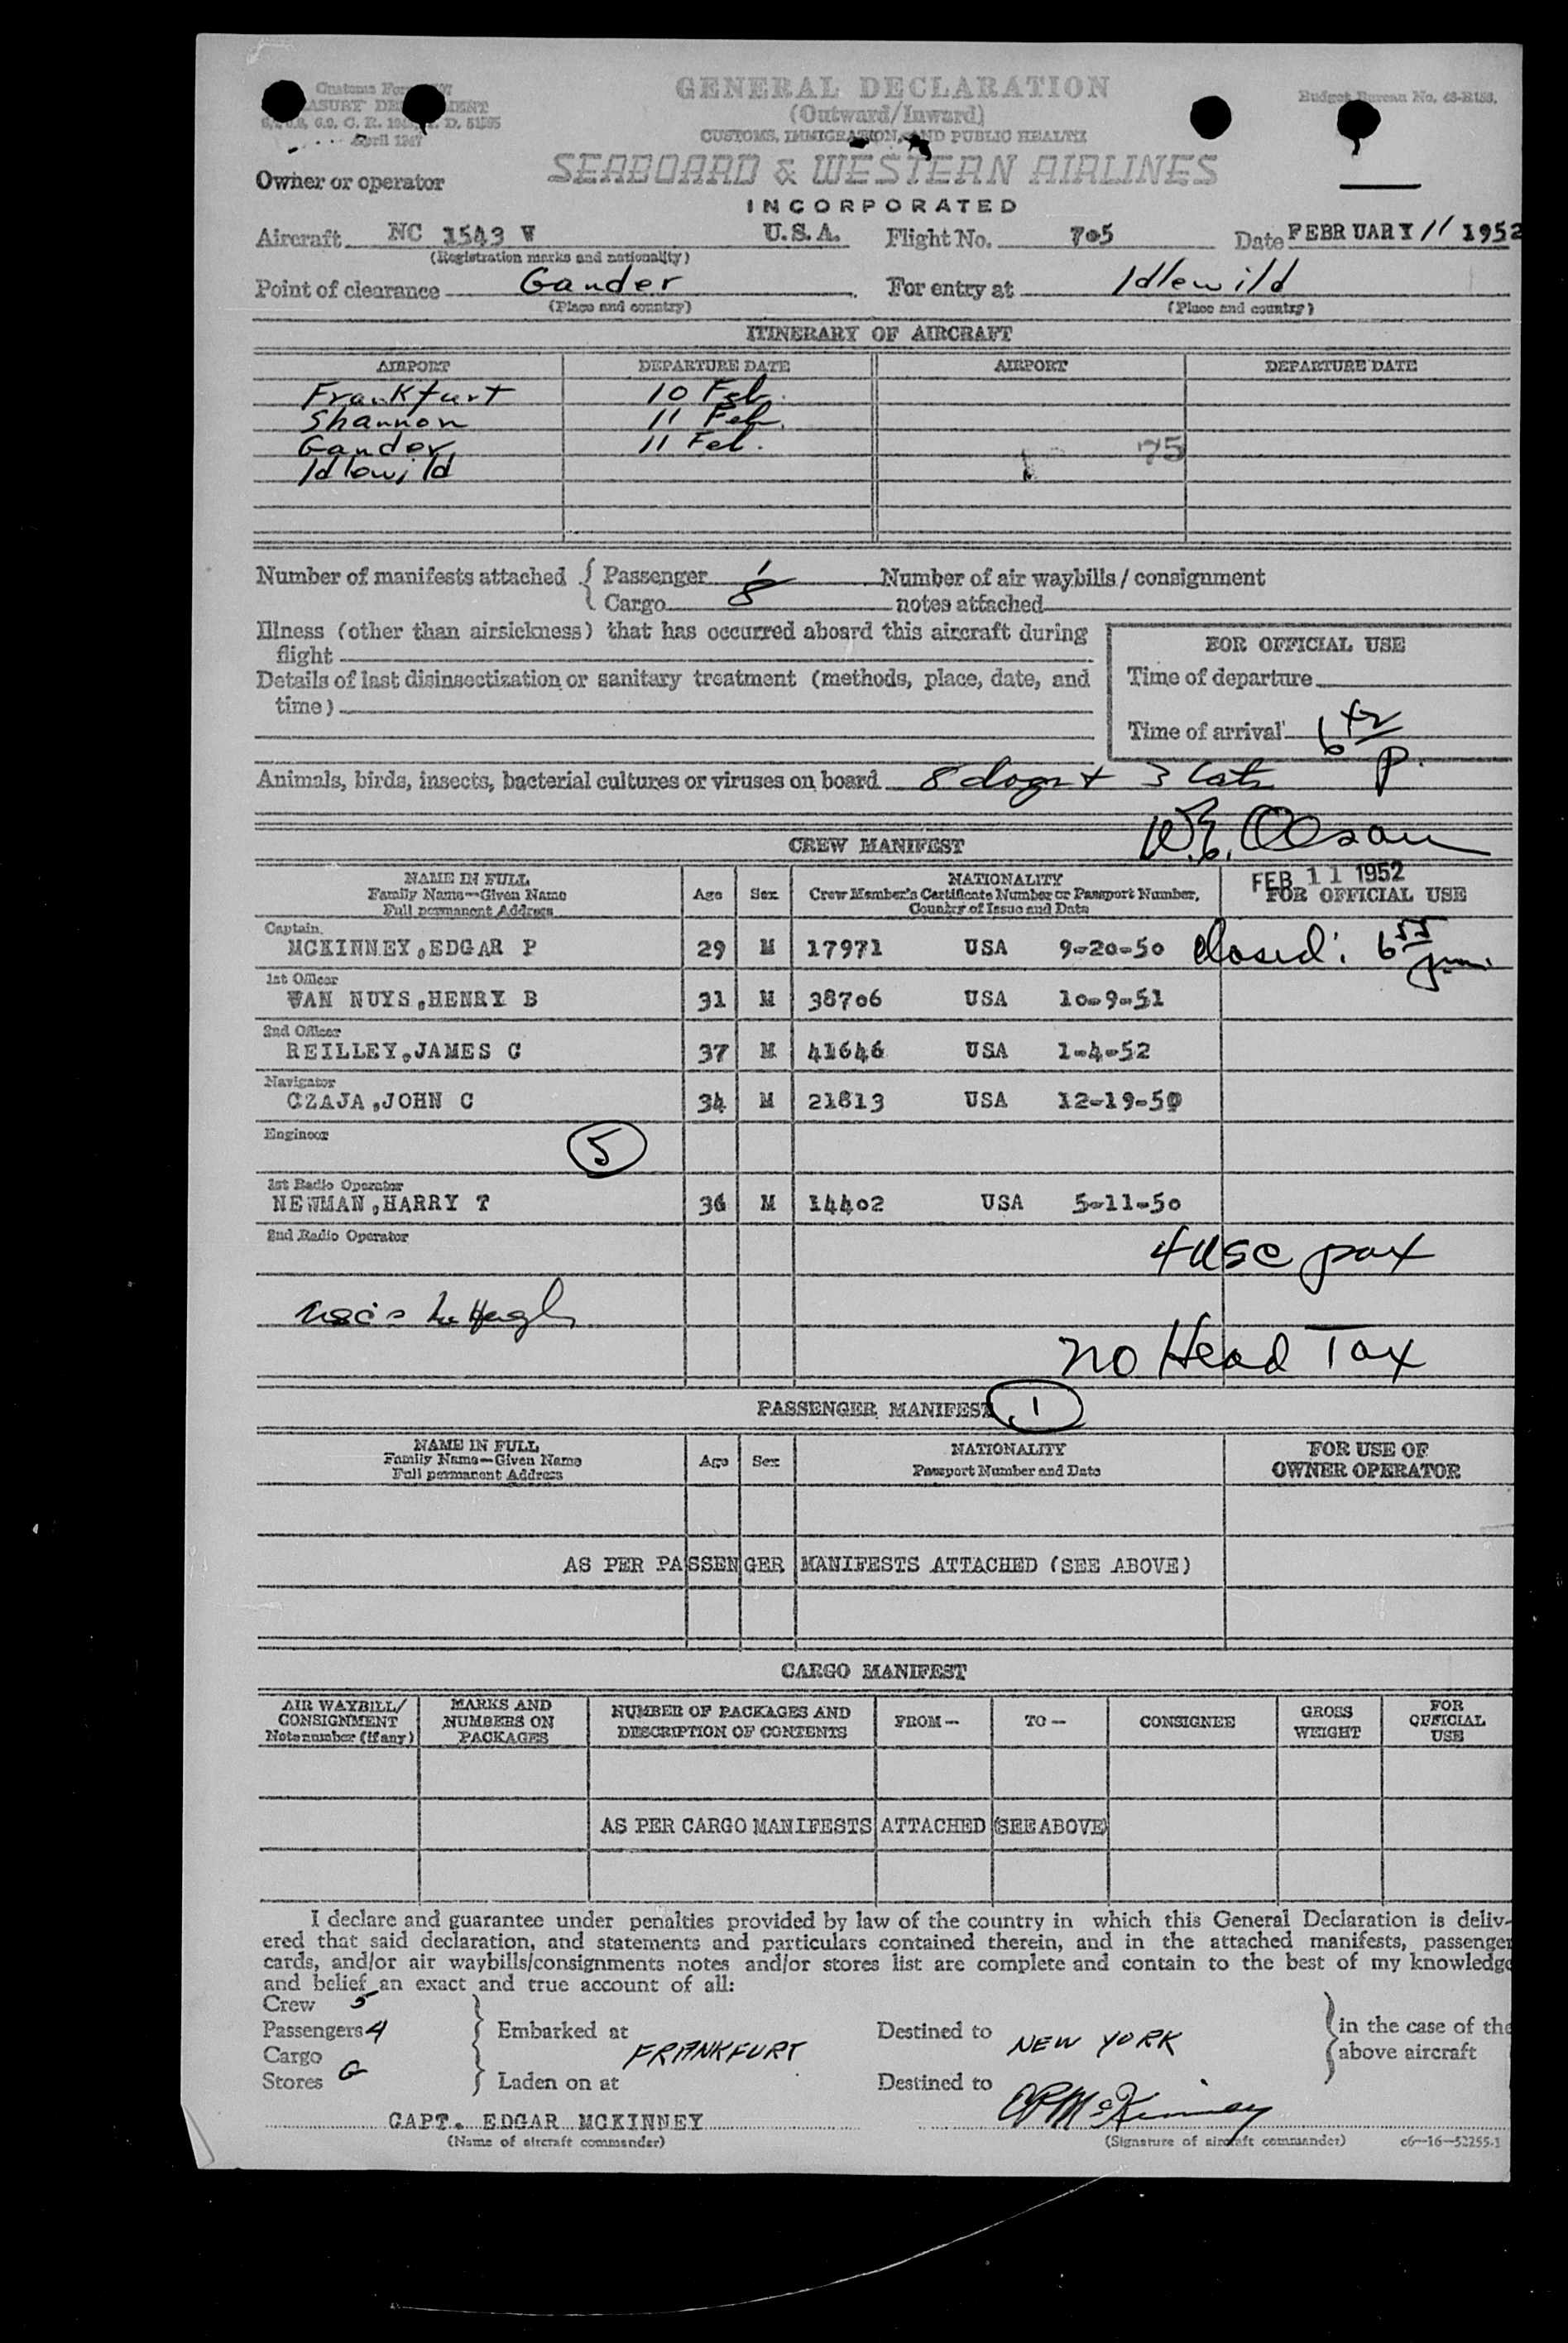 GENERAL DECLARATION
(Outward/Inward)
CUSTOMS, IMMIGRATION, AND PUBLIC HEALTH
Customs Form
April 1947
Budget Bureau No. 48-R158.
Owner or operator SEABOARD & WESTERN AIRLINES
INCORPORATED
Aircraft NC 1543 V U.S.A. Flight No. 705 Date FEBRUARY 11 1952
(Registration marks and nationality)
Point of clearance Gander For entry at Idlewild
(Place and country) (Place and country)
ITINERARY OF AIRCRAFT
AIRPORT DEPARTURE DATE AIRPORT DEPARTURE DATE
Frankfurt 10 Feb.
Shannon 11 Feb.
Gander 11 Feb. 75
Idlewild
Number of manifests attached { Passenger 1 Number of air waybills/consignment
Cargo 8 notes attached
Illness (other than airsickness) that has occurred aboard this aircraft during
flight
FOR OFFICIAL USE
Details of last disinsectization or sanitary treatment (methods, place, date, and
time)
Time of departure
Time of arrival 6 42 P.
Animals, birds, insects, bacterial cultures or viruses on board 8 dogs + 3 cats
W.E. Olson
CREW MANIFEST
NAME IN FULL
Family Name—Given Name
Full permanent Address
Age Sex
NATIONALITY
Crew Member's Certificate Number or Passport Number,
Country of Issue and Date
FEB 11 1952
FOR OFFICIAL USE
Captain
MCKINNEY,EDGAR P 29 M 17971 USA 9-20-50 closed: 6 55 pm.
1st Officer
VAN NUYS,HENRY B 31 M 38706 USA 10-9-51
2nd Officer
REILLEY,JAMES C 37 M 41646 USA 1-4-52
Navigator
CZAJA,JOHN C 34 M 21813 USA 12-19-50
Engineer
5
1st Radio Operator
NEWMAN,HARRY T 36 M 14402 USA 5-11-50
2nd Radio Operator
4 USC pax
No Head Tax
PASSENGER MANIFEST 1
NAME IN FULL
Family Name—Given Name
Full permanent Address
Age Sex
NATIONALITY
Passport Number and Date
FOR USE OF
OWNER OPERATOR
AS PER PASSENGER MANIFESTS ATTACHED (SEE ABOVE)
CARGO MANIFEST
AIR WAYBILL/
CONSIGNMENT
Note number (if any)
MARKS AND
NUMBERS ON
PACKAGES
NUMBER OF PACKAGES AND
DESCRIPTION OF CONTENTS
FROM— TO— CONSIGNEE
GROSS
WEIGHT
FOR
OFFICIAL
USE
AS PER CARGO MANIFESTS ATTACHED (SEE ABOVE)
I declare and guarantee under penalties provided by law of the country in which this General Declaration is deliv-
ered that said declaration, and statements and particulars contained therein, and in the attached manifests, passenger
cards, and/or air waybills/consignments notes and/or stores list are complete and contain to the best of my knowledge
and belief an exact and true account of all:
Crew 5
Passengers 4 } Embarked at FRANKFURT Destined to NEW YORK } in the case of the
Cargo above aircraft
Stores G } Laden on at Destined to
CAPT. EDGAR MCKINNEY EP McKinney
(Name of aircraft commander) (Signature of aircraft commander) c6—16—52255-1